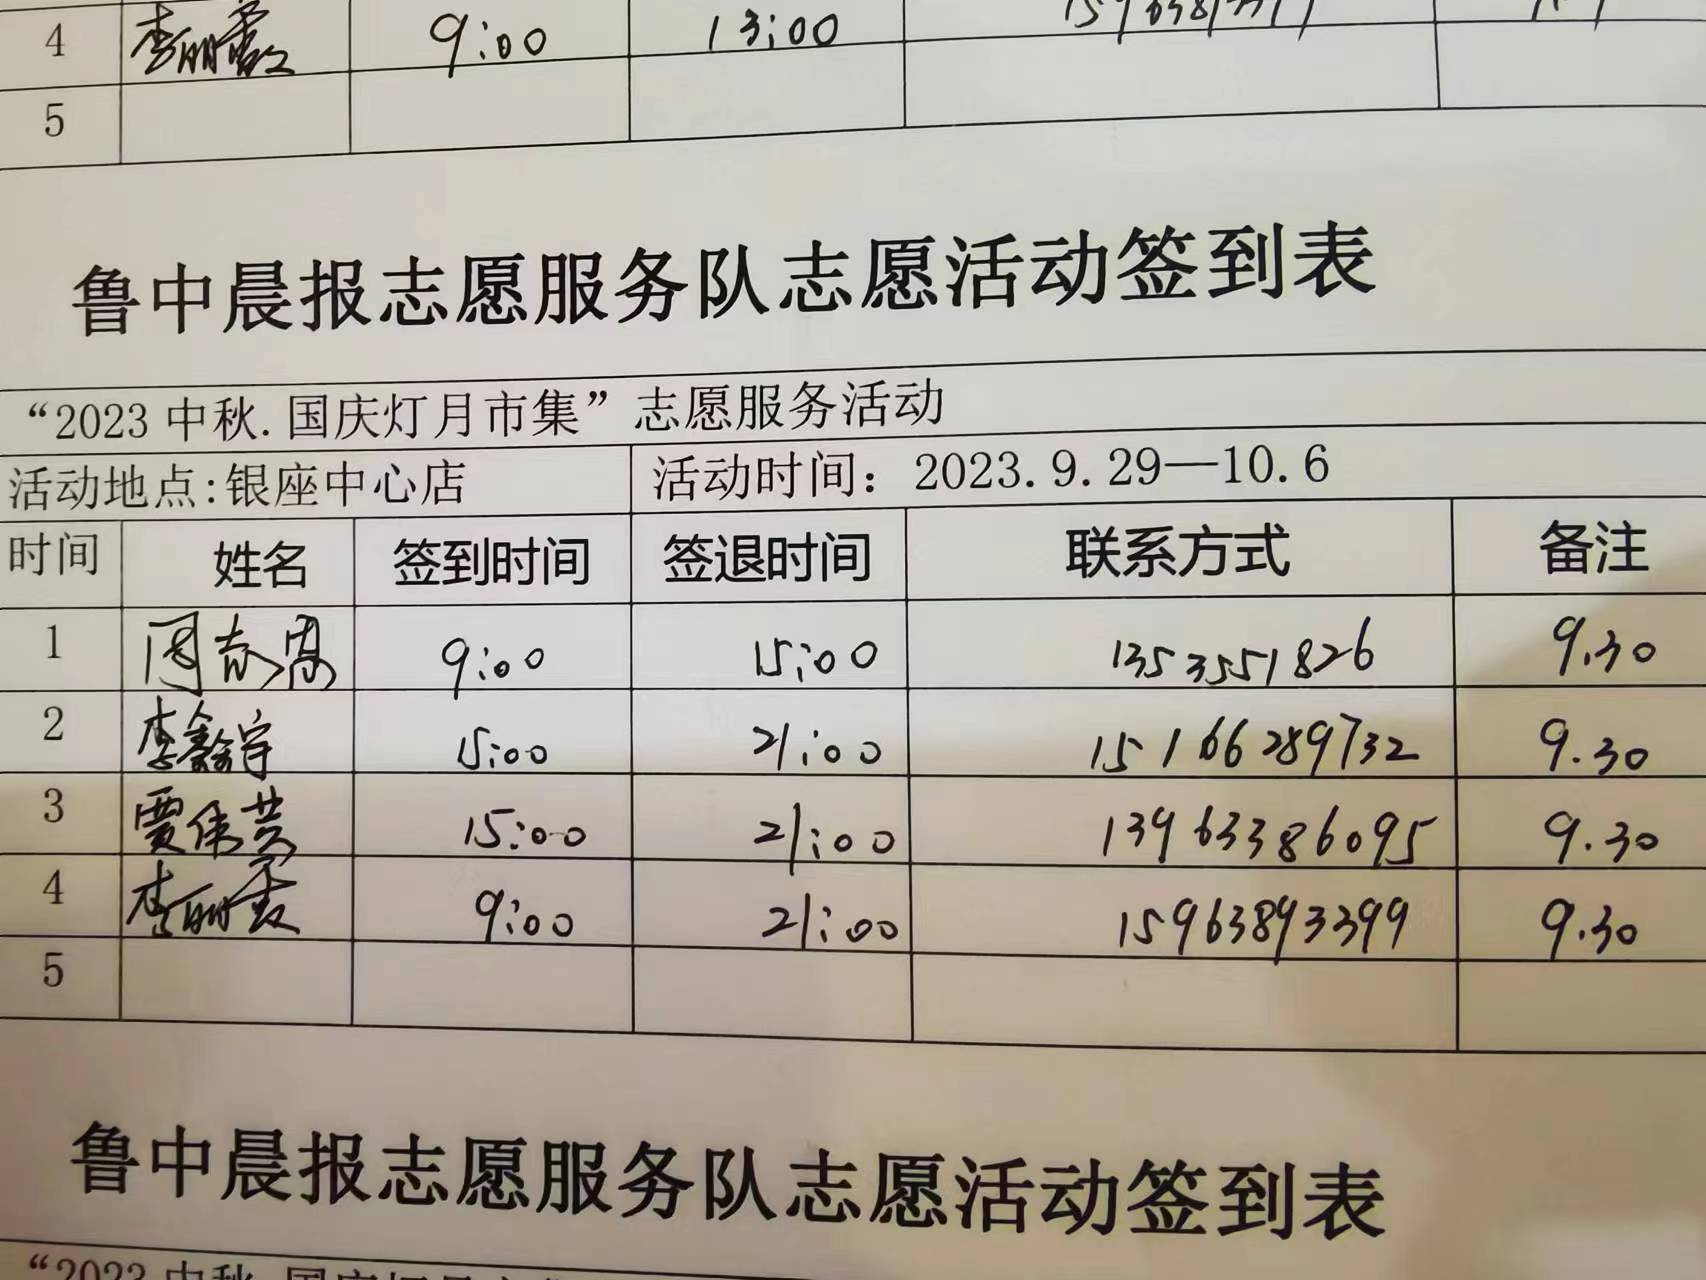 4 李丽霞 9:00 13:00
5
鲁中晨报志愿服务队志愿活动签到表
“2023 中秋.国庆灯月市集”志愿服务活动
活动地点:银座中心店 活动时间：2023.9.29—10.6
时间 姓名 签到时间 签退时间 联系方式 备注
1 周志高 9:00 15:00 1353551826 9.30
2 李鑫宇 15:00 21:00 15166289732 9.30
3 贾伟芸 15:00 21:00 13963386095 9.30
4 李丽霞 9:00 21:00 15963893399 9.30
5
鲁中晨报志愿服务队志愿活动签到表
“2023 中秋.国庆灯月市集